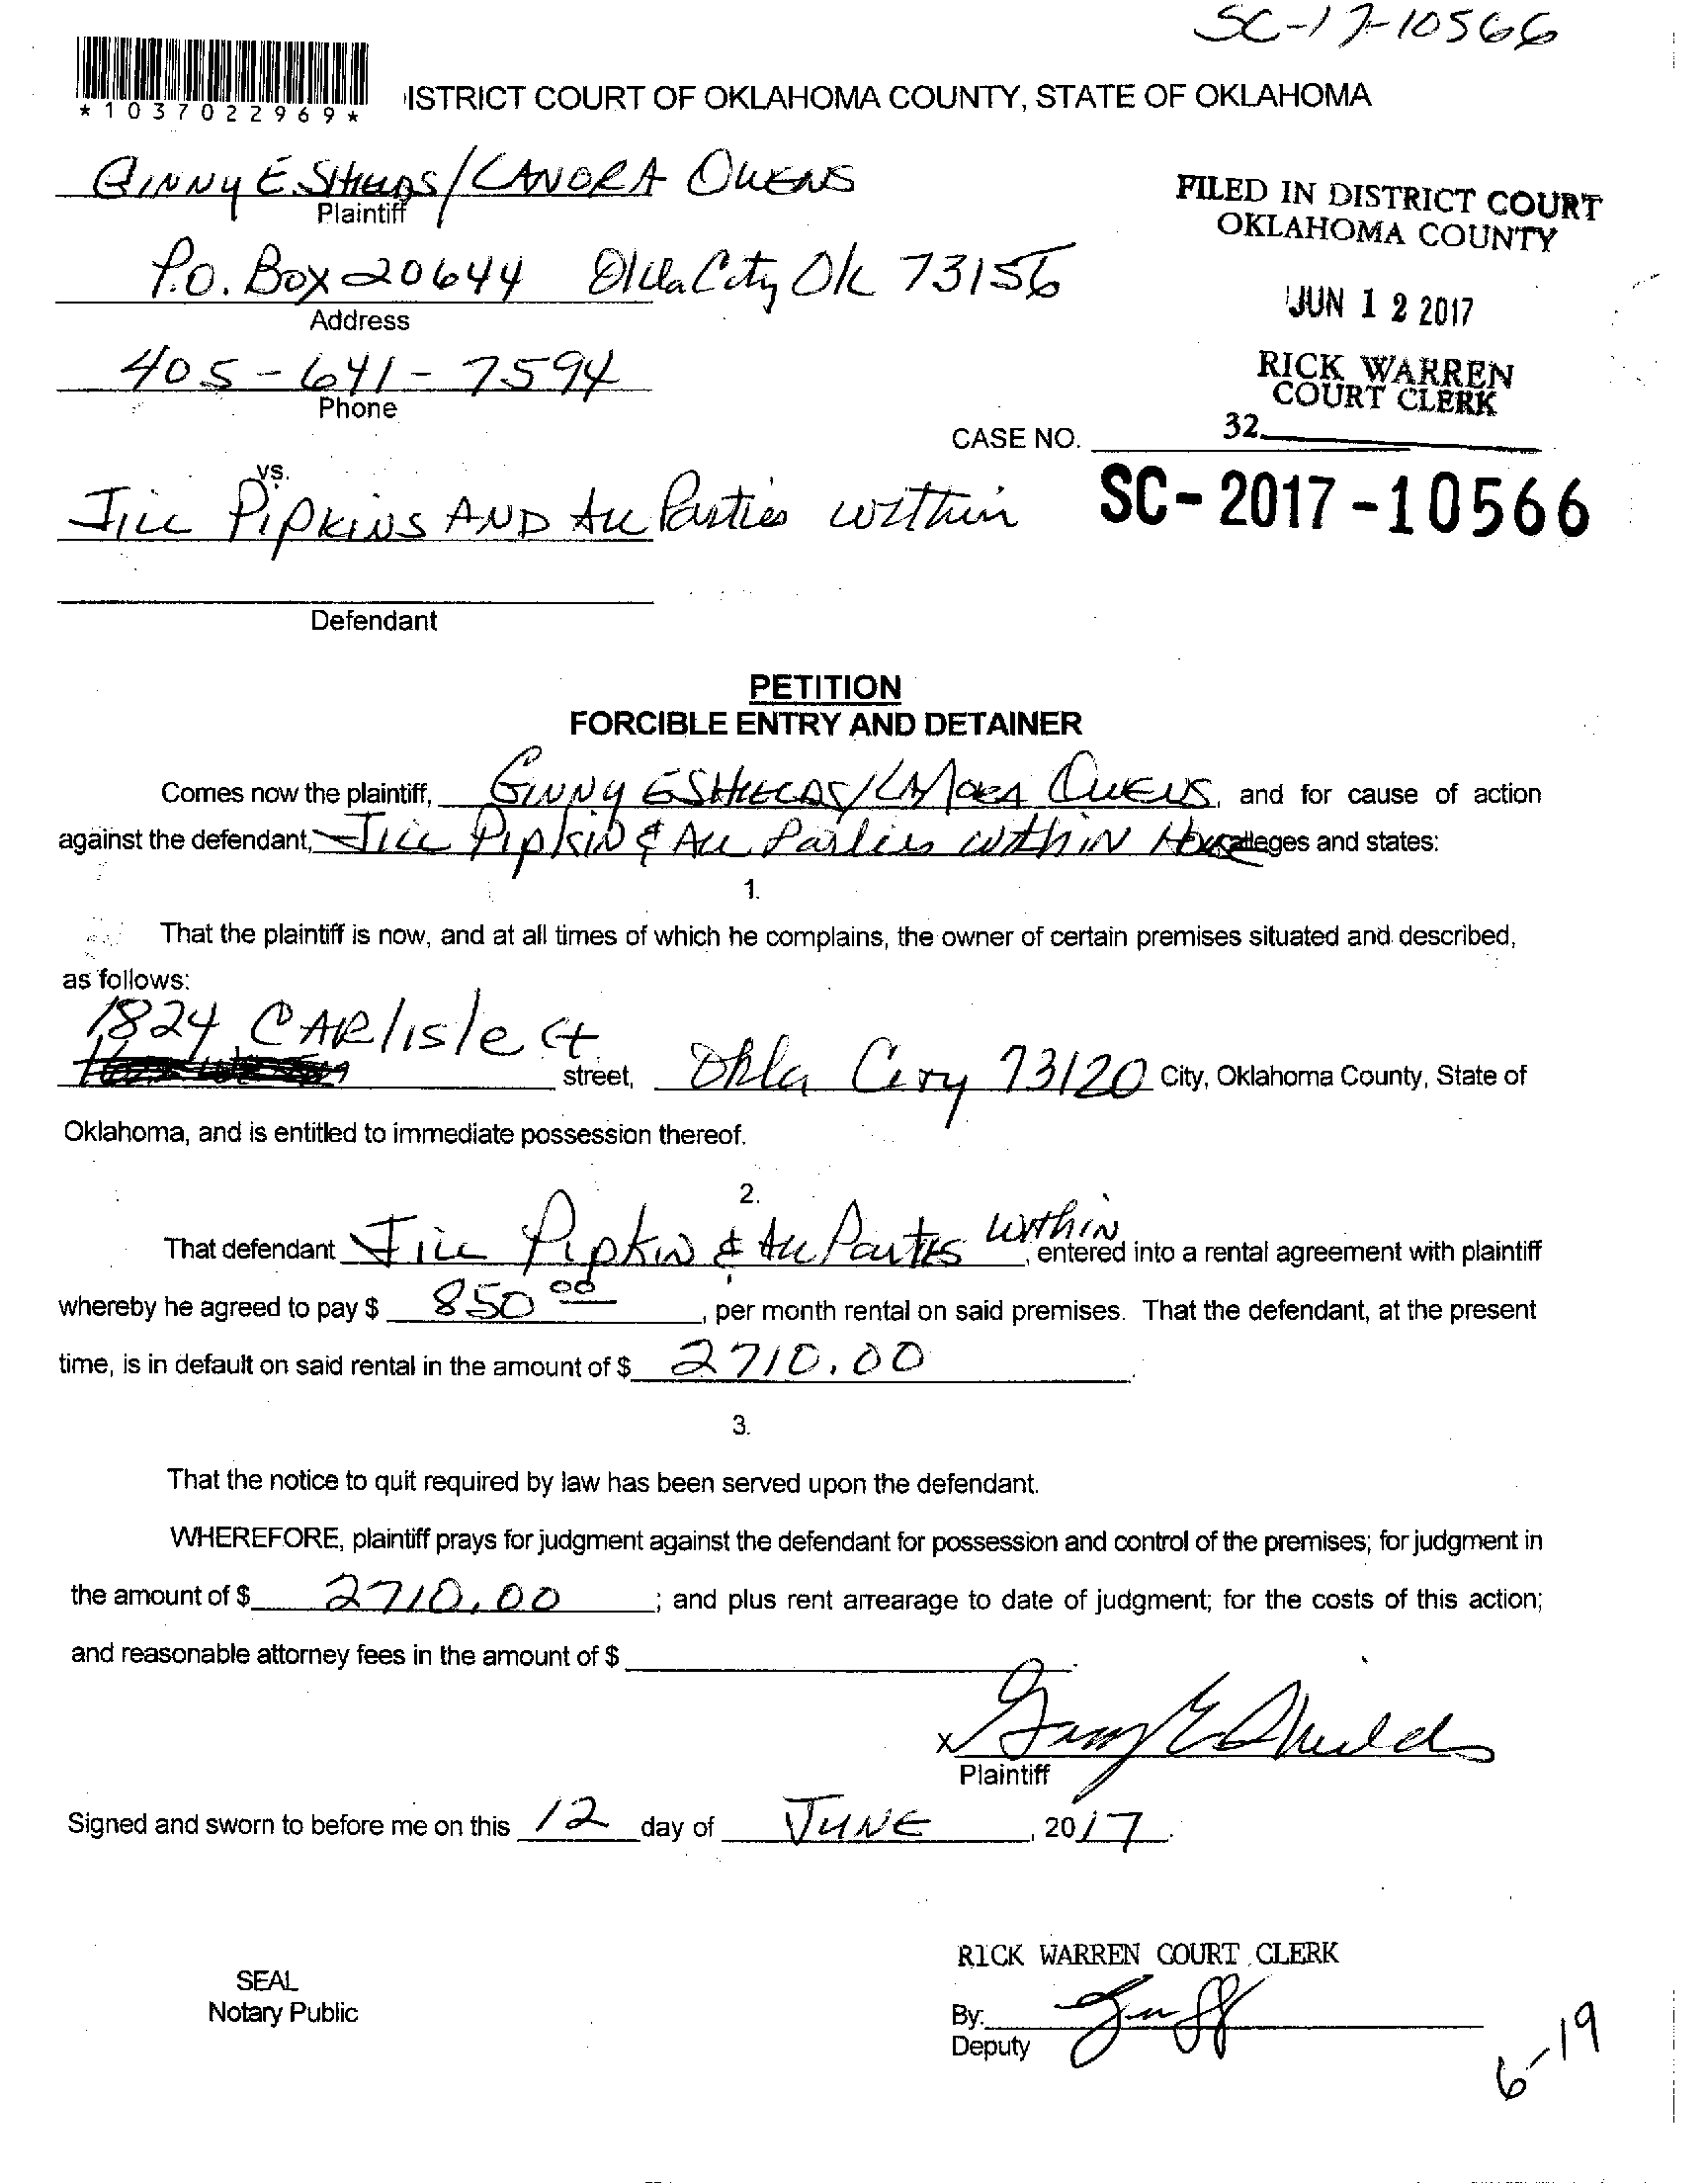 SC-17-10566
*1037022969*
ISTRICT COURT OF OKLAHOMA COUNTY, STATE OF OKLAHOMA
GINNY E. SHIELDS/LANORA OWENS
Plaintiff
FILED IN DISTRICT COURT
OKLAHOMA COUNTY
P.O. Box 20644 Okla City Ok 73156
Address
JUN 12 2017
405-641-7594
Phone
RICK WARREN
COURT CLERK
32
CASE NO.
vs.
SC-2017-10566
Jill Pipkins AND All Parties within
Defendant
PETITION
FORCIBLE ENTRY AND DETAINER
Comes now the plaintiff, Ginny E SHIELDS/LANORA OWENS, and for cause of action
against the defendant, Jill Pipkin & All Parties within House alleges and states:
1.
That the plaintiff is now, and at all times of which he complains, the owner of certain premises situated and described,
as follows:
1824 CARlisle Ct
street, Okla City 73120 City, Oklahoma County, State of
Oklahoma, and is entitled to immediate possession thereof.
2.
That defendant Jill Pipkin & All Parties within, entered into a rental agreement with plaintiff
whereby he agreed to pay $ 850 00, per month rental on said premises. That the defendant, at the present
time, is in default on said rental in the amount of $ 2710.00.
3.
That the notice to quit required by law has been served upon the defendant.
WHEREFORE, plaintiff prays for judgment against the defendant for possession and control of the premises; for judgment in
the amount of $ 2710.00; and plus rent arrearage to date of judgment; for the costs of this action;
and reasonable attorney fees in the amount of $
x Ginny E Shields
Plaintiff
Signed and sworn to before me on this 12 day of JUNE, 2017.
RICK WARREN COURT CLERK
SEAL
Notary Public
By:
Deputy
6-19